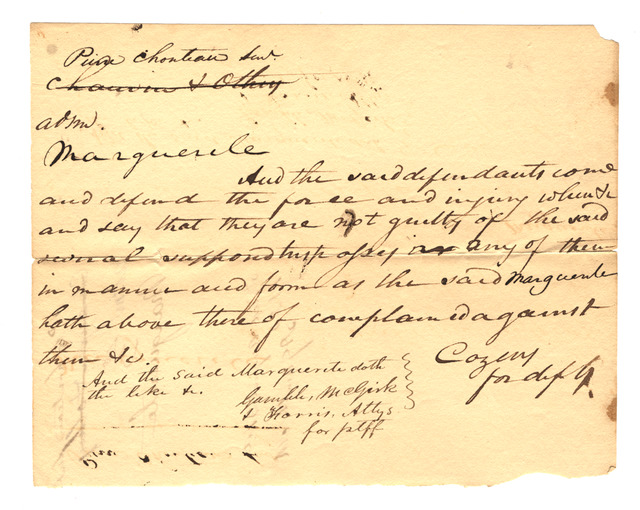 Pierre Chouteau Senr.
Chauvin & Others
adsm.
Marguerite
And the said defendants come
and defend the force and injury when &c
and say that they are not guilty of the said
several supposed trespasses or any of them
in manner and form as the said Marguerite
hath above thereof complained against
them &c.
Cozens
for defts.
And the said Marguerite doth
the like &c.
Gamble, McGirk
& Horris, Attys
for ptff